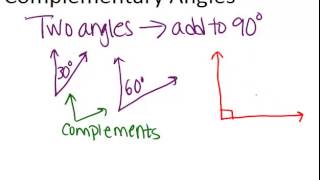 Complementary Angles
Two angles → add to 90°
30°
60°
complements